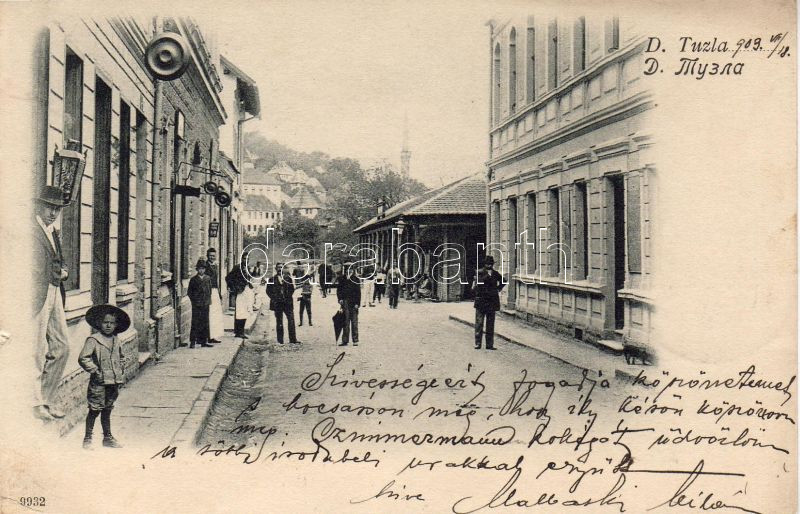 D. Tuzla 903. VII/18.
Д. Тузла
darabanth.com
Szívességeért fogadja köszönetemet
s bocsásson meg, hogy ily későn köszönöm
meg. Czimmermann kollégát üdvözlöm
a irodabeli urakkal együtt
híve
9932